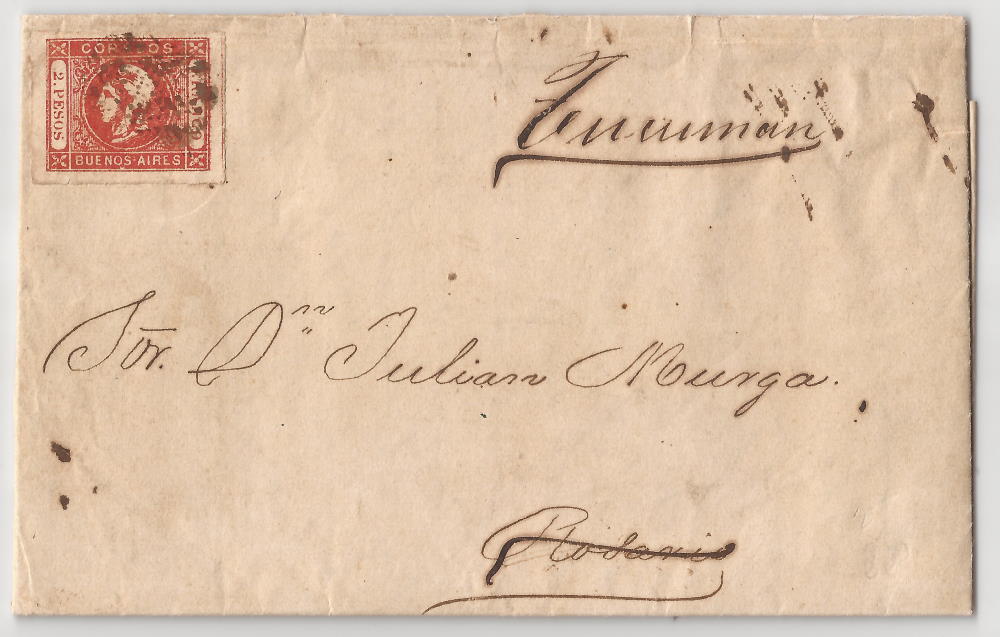 CORREOS
2. PESOS
BUENOS-AIRES
Tucuman
Sõr. Dⁿⁿ Julian Murga.
Rosario